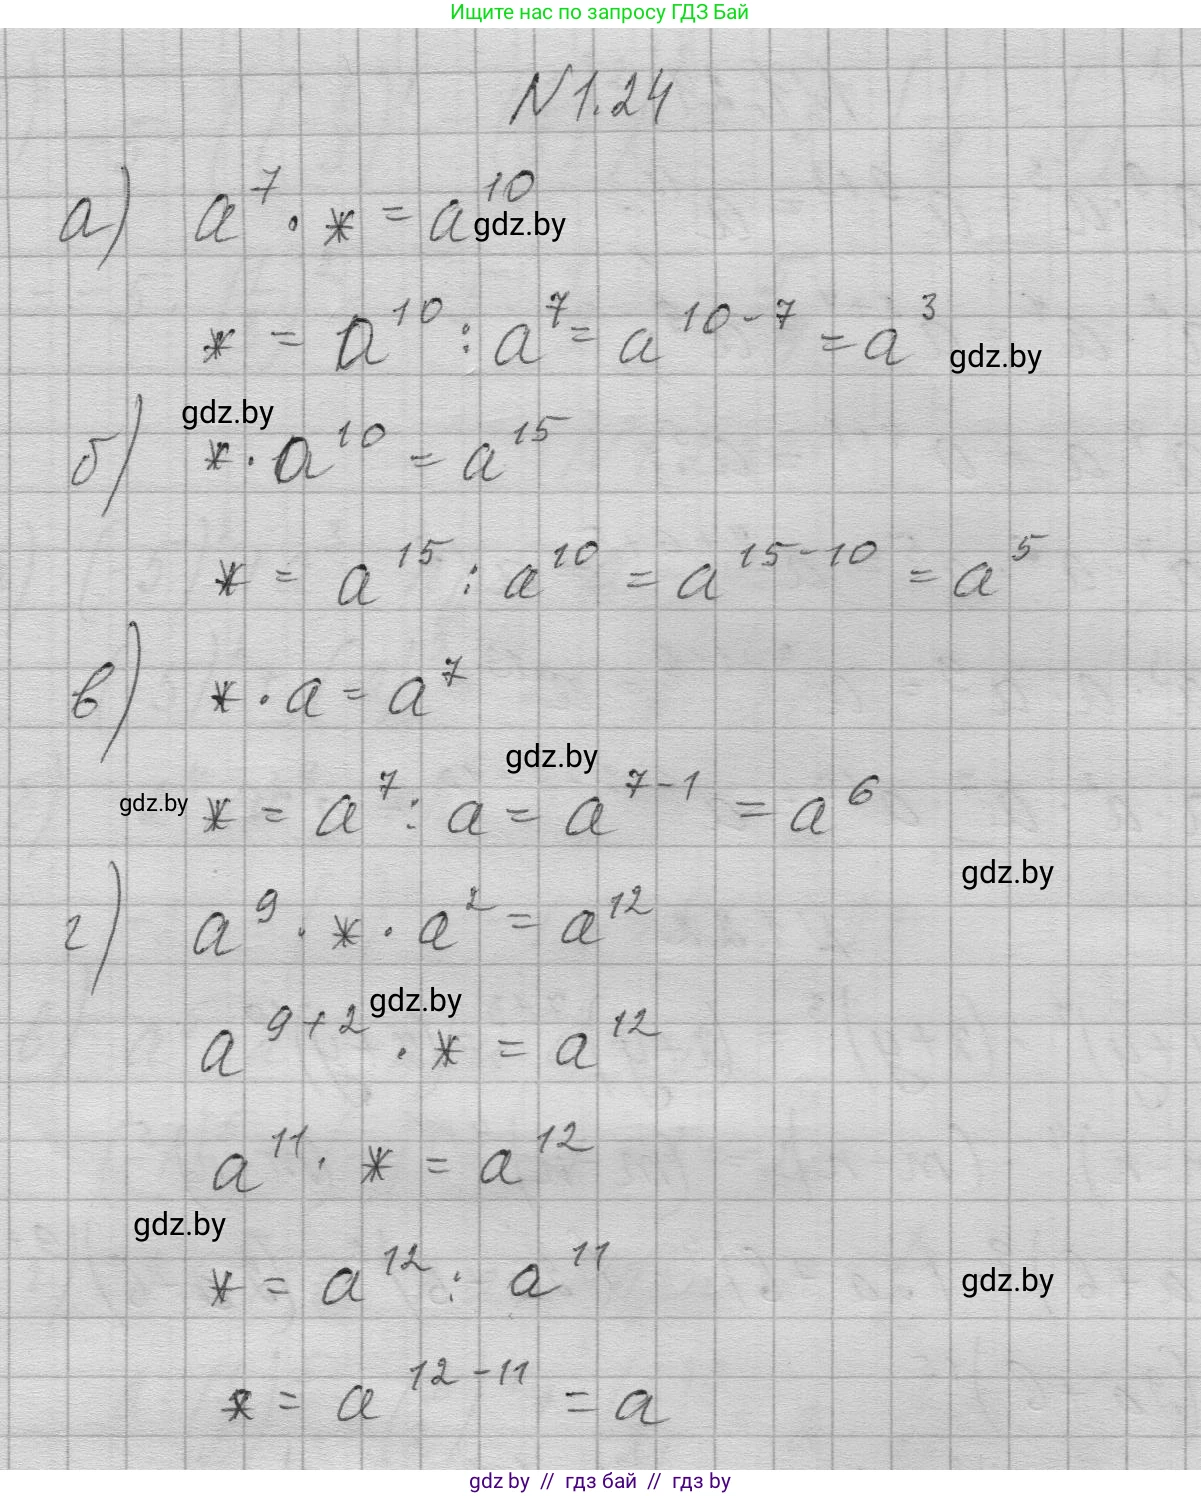 Ищите нас по запросу ГДЗ Бай
N 1.24
а) a⁷ · * = a¹⁰
gdz.by
* = a¹⁰ : a⁷ = a¹⁰⁻⁷ = a³
gdz.by
gdz.by
б) * · a¹⁰ = a¹⁵
* = a¹⁵ : a¹⁰ = a¹⁵⁻¹⁰ = a⁵
в) * · a = a⁷
gdz.by
gdz.by
* = a⁷ : a = a⁷⁻¹ = a⁶
gdz.by
г) a⁹ · * · a² = a¹²
gdz.by
a⁹⁺² · * = a¹²
a¹¹ · * = a¹²
gdz.by
* = a¹² : a¹¹
gdz.by
* = a¹²⁻¹¹ = a
gdz by // гдз бай // гдз by